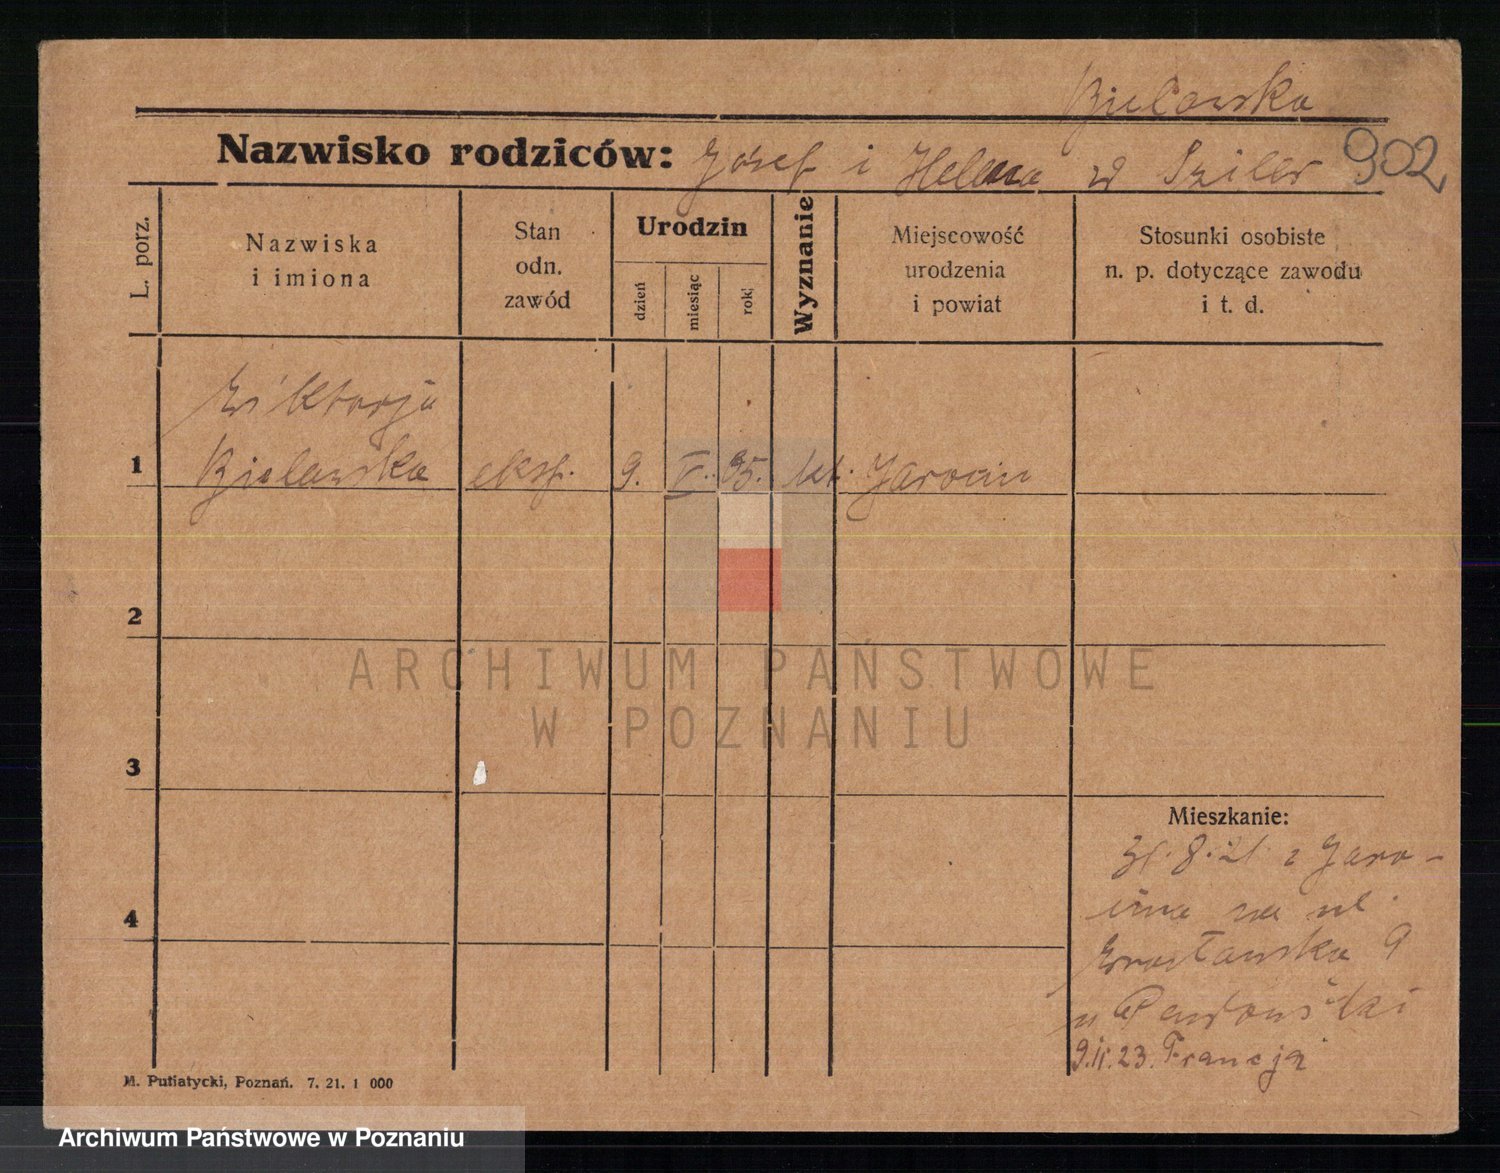 Bielawska
Nazwisko rodziców: Józef i Helena z Sziler 902
L. porz.
Nazwiska
i imiona
Stan
odn.
zawód
Urodzin
dzień
miesiąc
rok
Wyznanie
Miejscowość
urodzenia
i powiat
Stosunki osobiste
n. p. dotyczące zawodu
i t. d.
Wiktorja
1 Bielawska eksp. 9. V. 95. kat. Jarocin
2
ARCHIWUM PAŃSTWOWE
W POZNANIU
3
Mieszkanie:
31.8.21 z Jaro-
cina na ul.
4
Wrocławska 9
u
9.II.23. Francja
M. Putiatycki, Poznań. 7. 21. 1 000
Archiwum Państwowe w Poznaniu